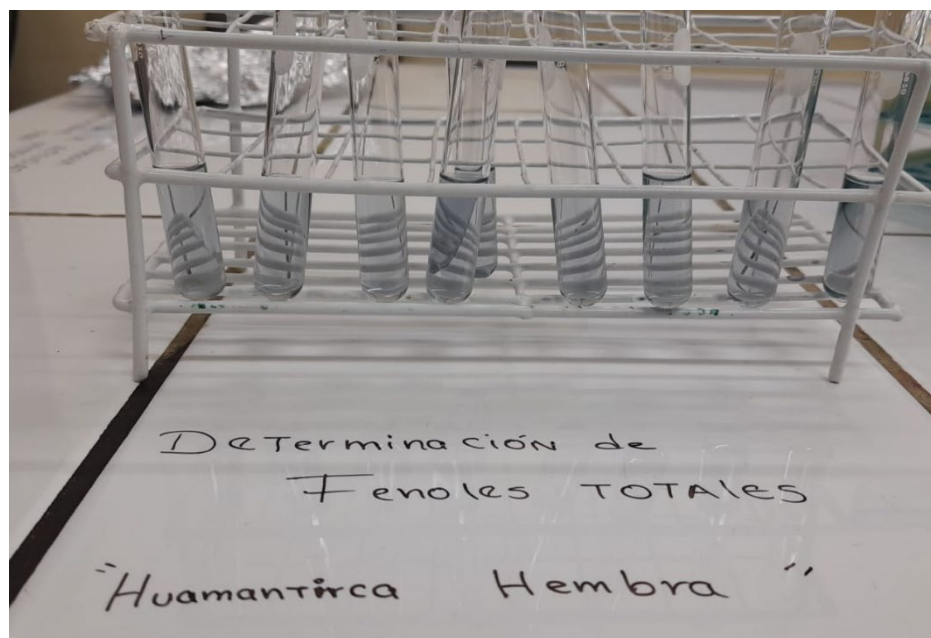 Determinación de
Fenoles TOTAles
"Huamantirca Hembra"